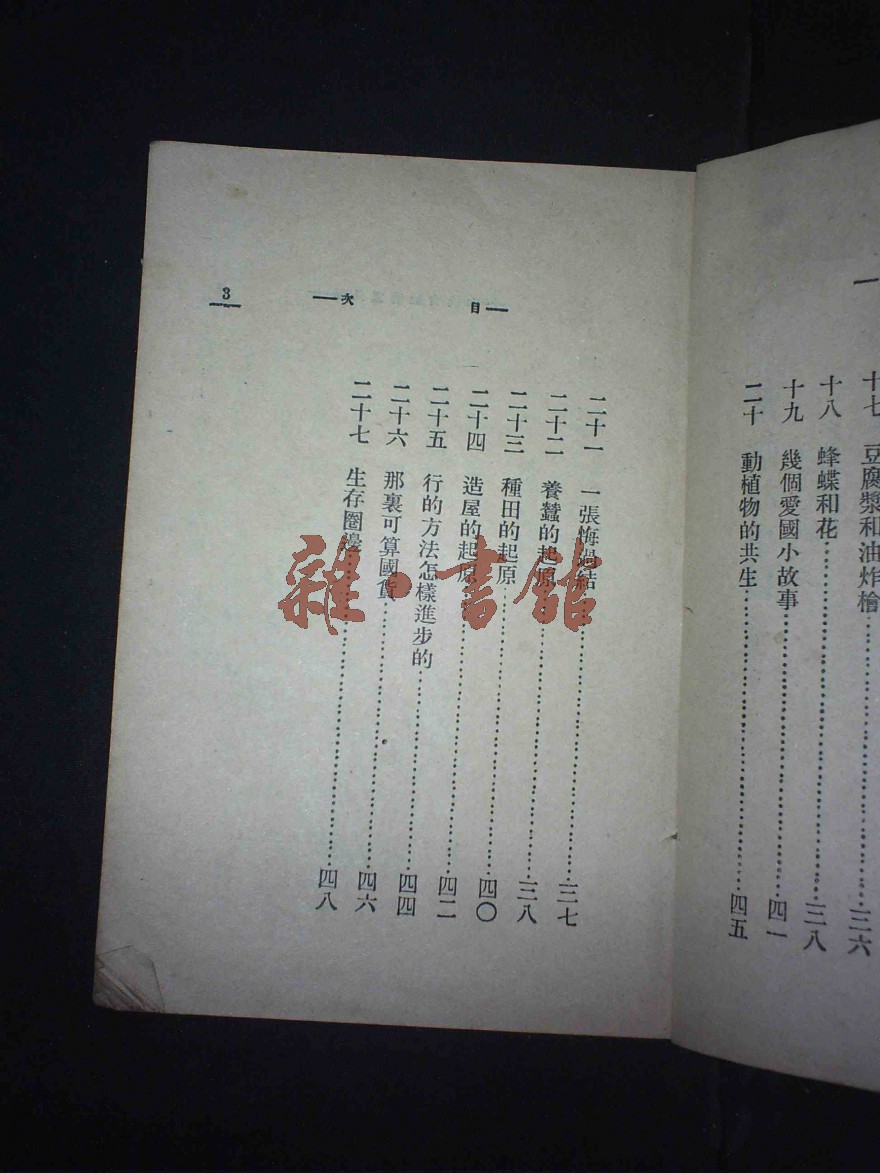 十七 豆腐漿和油炸檜……三六
十八 蜂蝶和花……三八
十九 幾個愛國小故事……四一
二十 動植物的共生……四五
—目 次—
3
二十一 一張悔過結……三七
二十二 養蠶的起原……三八
二十三 種田的起原……四〇
二十四 造屋的起原……四二
二十五 行的方法怎樣進步的……四四
二十六 那裏可算國貨……四六
二十七 生存圈邊……四八
雜·書館